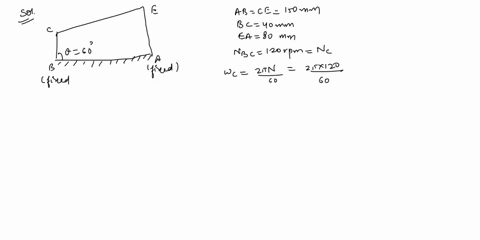 Sol.
E
C
θ = 60°
B
A
(fixed)
(fixed)
AB = CE = 150mm
BC = 40mm
EA = 80 mm
N_BC = 120 rpm = N_C
ω_C = 2πN/60 = 2π×120/60